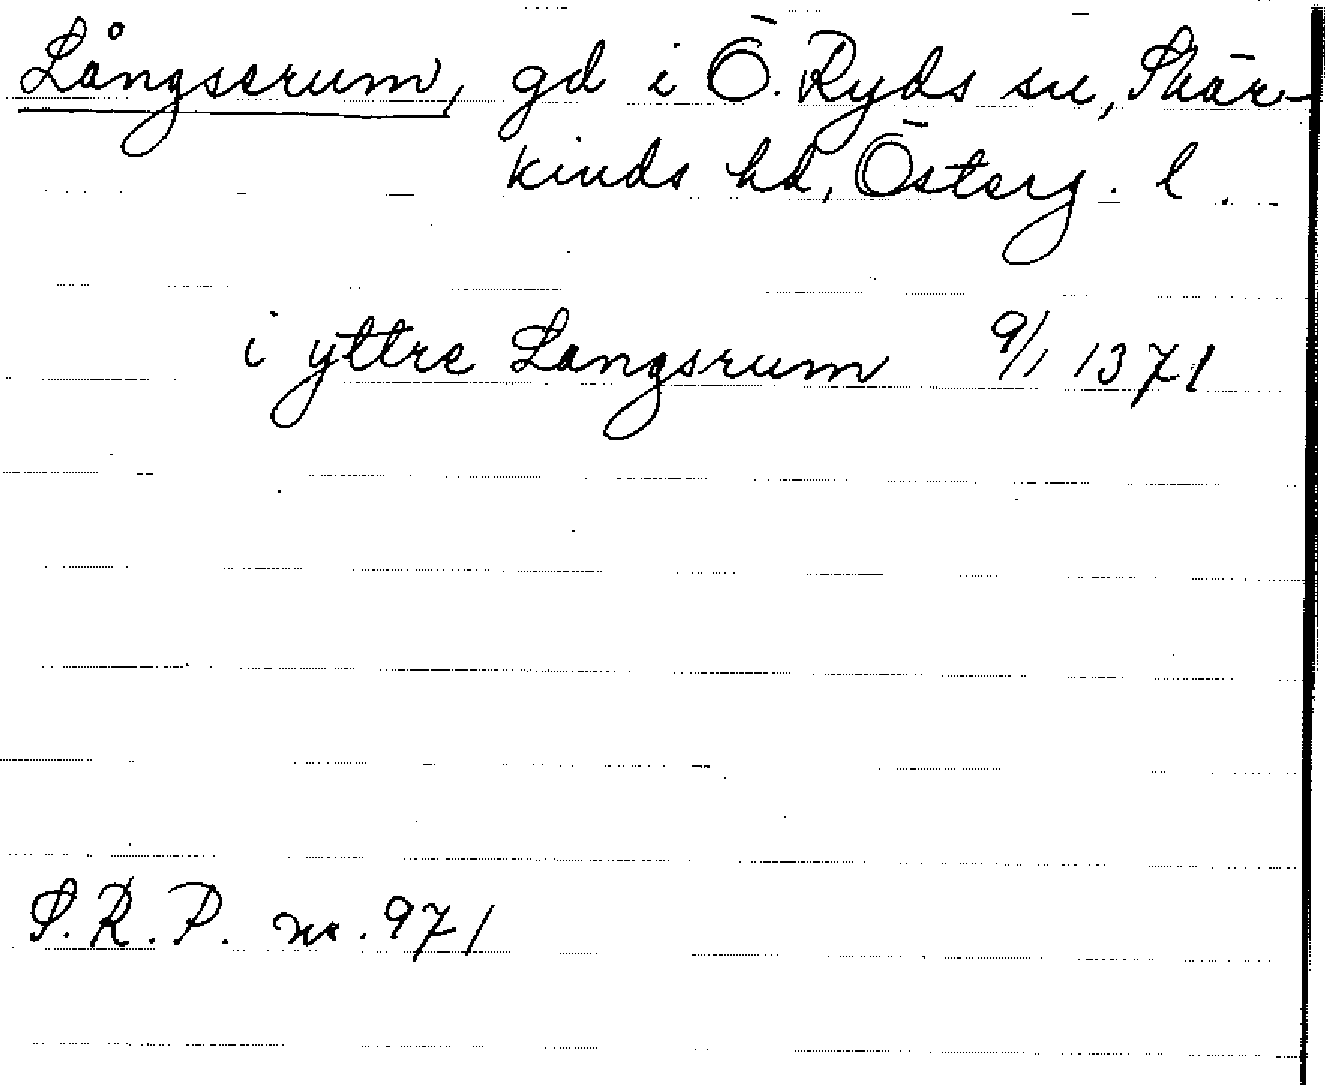 Långserum, gd i Ö. Ryds sn, Skär-
kinds hd, Österg. l.
i yttre Langsrum 9/1 1371
S.R.P. nr. 971